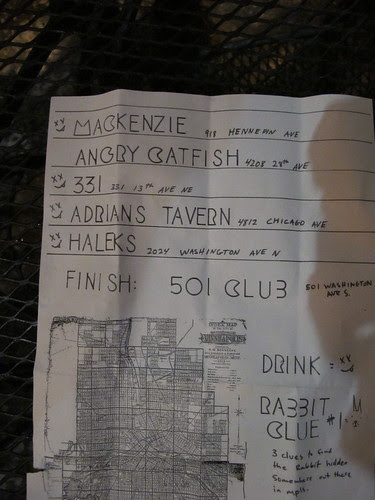 MACKENZIE 918 HENNEPIN AVE
ANGRY CATFISH 4208 28th AVE
331 331 13th AVE NE
ADRIANS TAVERN 4812 CHICAGO AVE
HALEKS 2024 WASHINGTON AVE N
FINISH: 501 CLUB 501 WASHINGTON
AVE S.
MINNEAPOLIS
DRINK =
RABBIT
CLUE #1=
3 clues to find
the Rabbit hidden
Somewhere out there
in mpls.